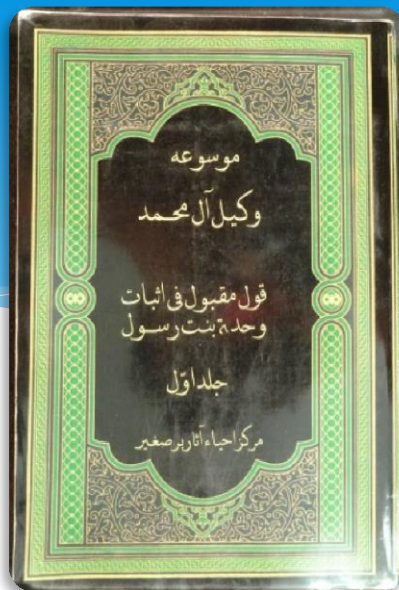 موسوعه
وکیل آل محمد
قول مقبول فی اثبات
وحدة بنت رسول
جلد اوّل
مرکز احیاء آثار برصغیر